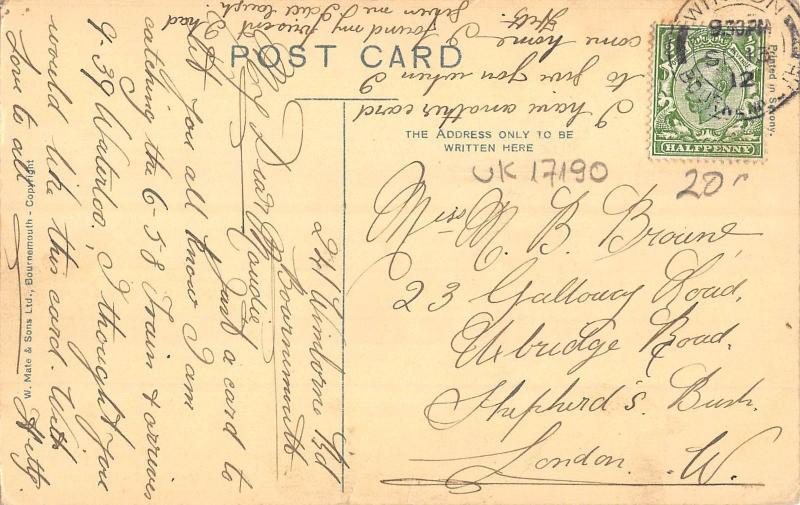 POST CARD
THE ADDRESS ONLY TO BE
WRITTEN HERE
Printed in Saxony.
W. Mate & Sons Ltd., Bournemouth - Copyright
WINTON
9.30PM
12
HALFPENNY
UK 17190
20
Miss M. B. Browne
23 Galloway Road,
Uxbridge Road.
Shepherd's Bush.
London. W.
241 Wimborne Rd
Bournemouth.
Dear Maudie
Just a card to
let you all know I am
catching the 6-58 Train & arrives
9-39 Waterloo. I thought you
would like this card. With
Love to all Hetty.
I have another card
to give you when I
come home. I found my
Hetty.
given me I did laugh.